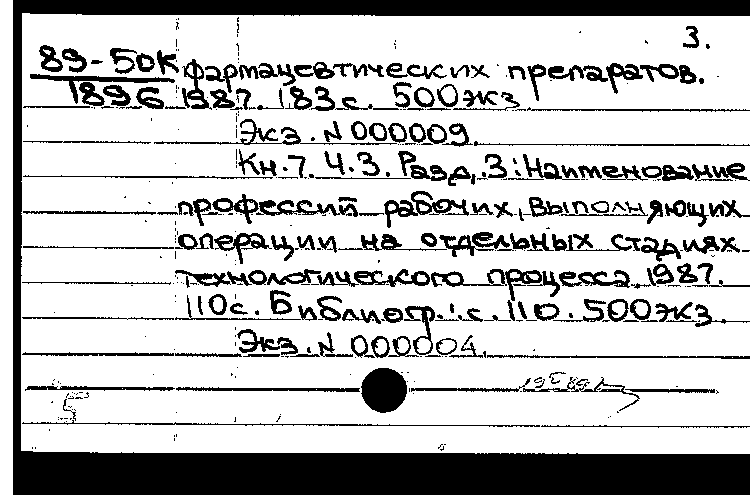 3.
89-50К фармацевтических препаратов.
1896 1987. 183 с. 500экз
Экз. N 000009.
Кн.7. Ч.3. Разд. 3: Наименование
профессий рабочих, выполняющих
операции на отдельных стадиях
технологического процесса. 1987.
110с. Библиогр.: с. 110. 500экз.
Экз. N 000004.
5